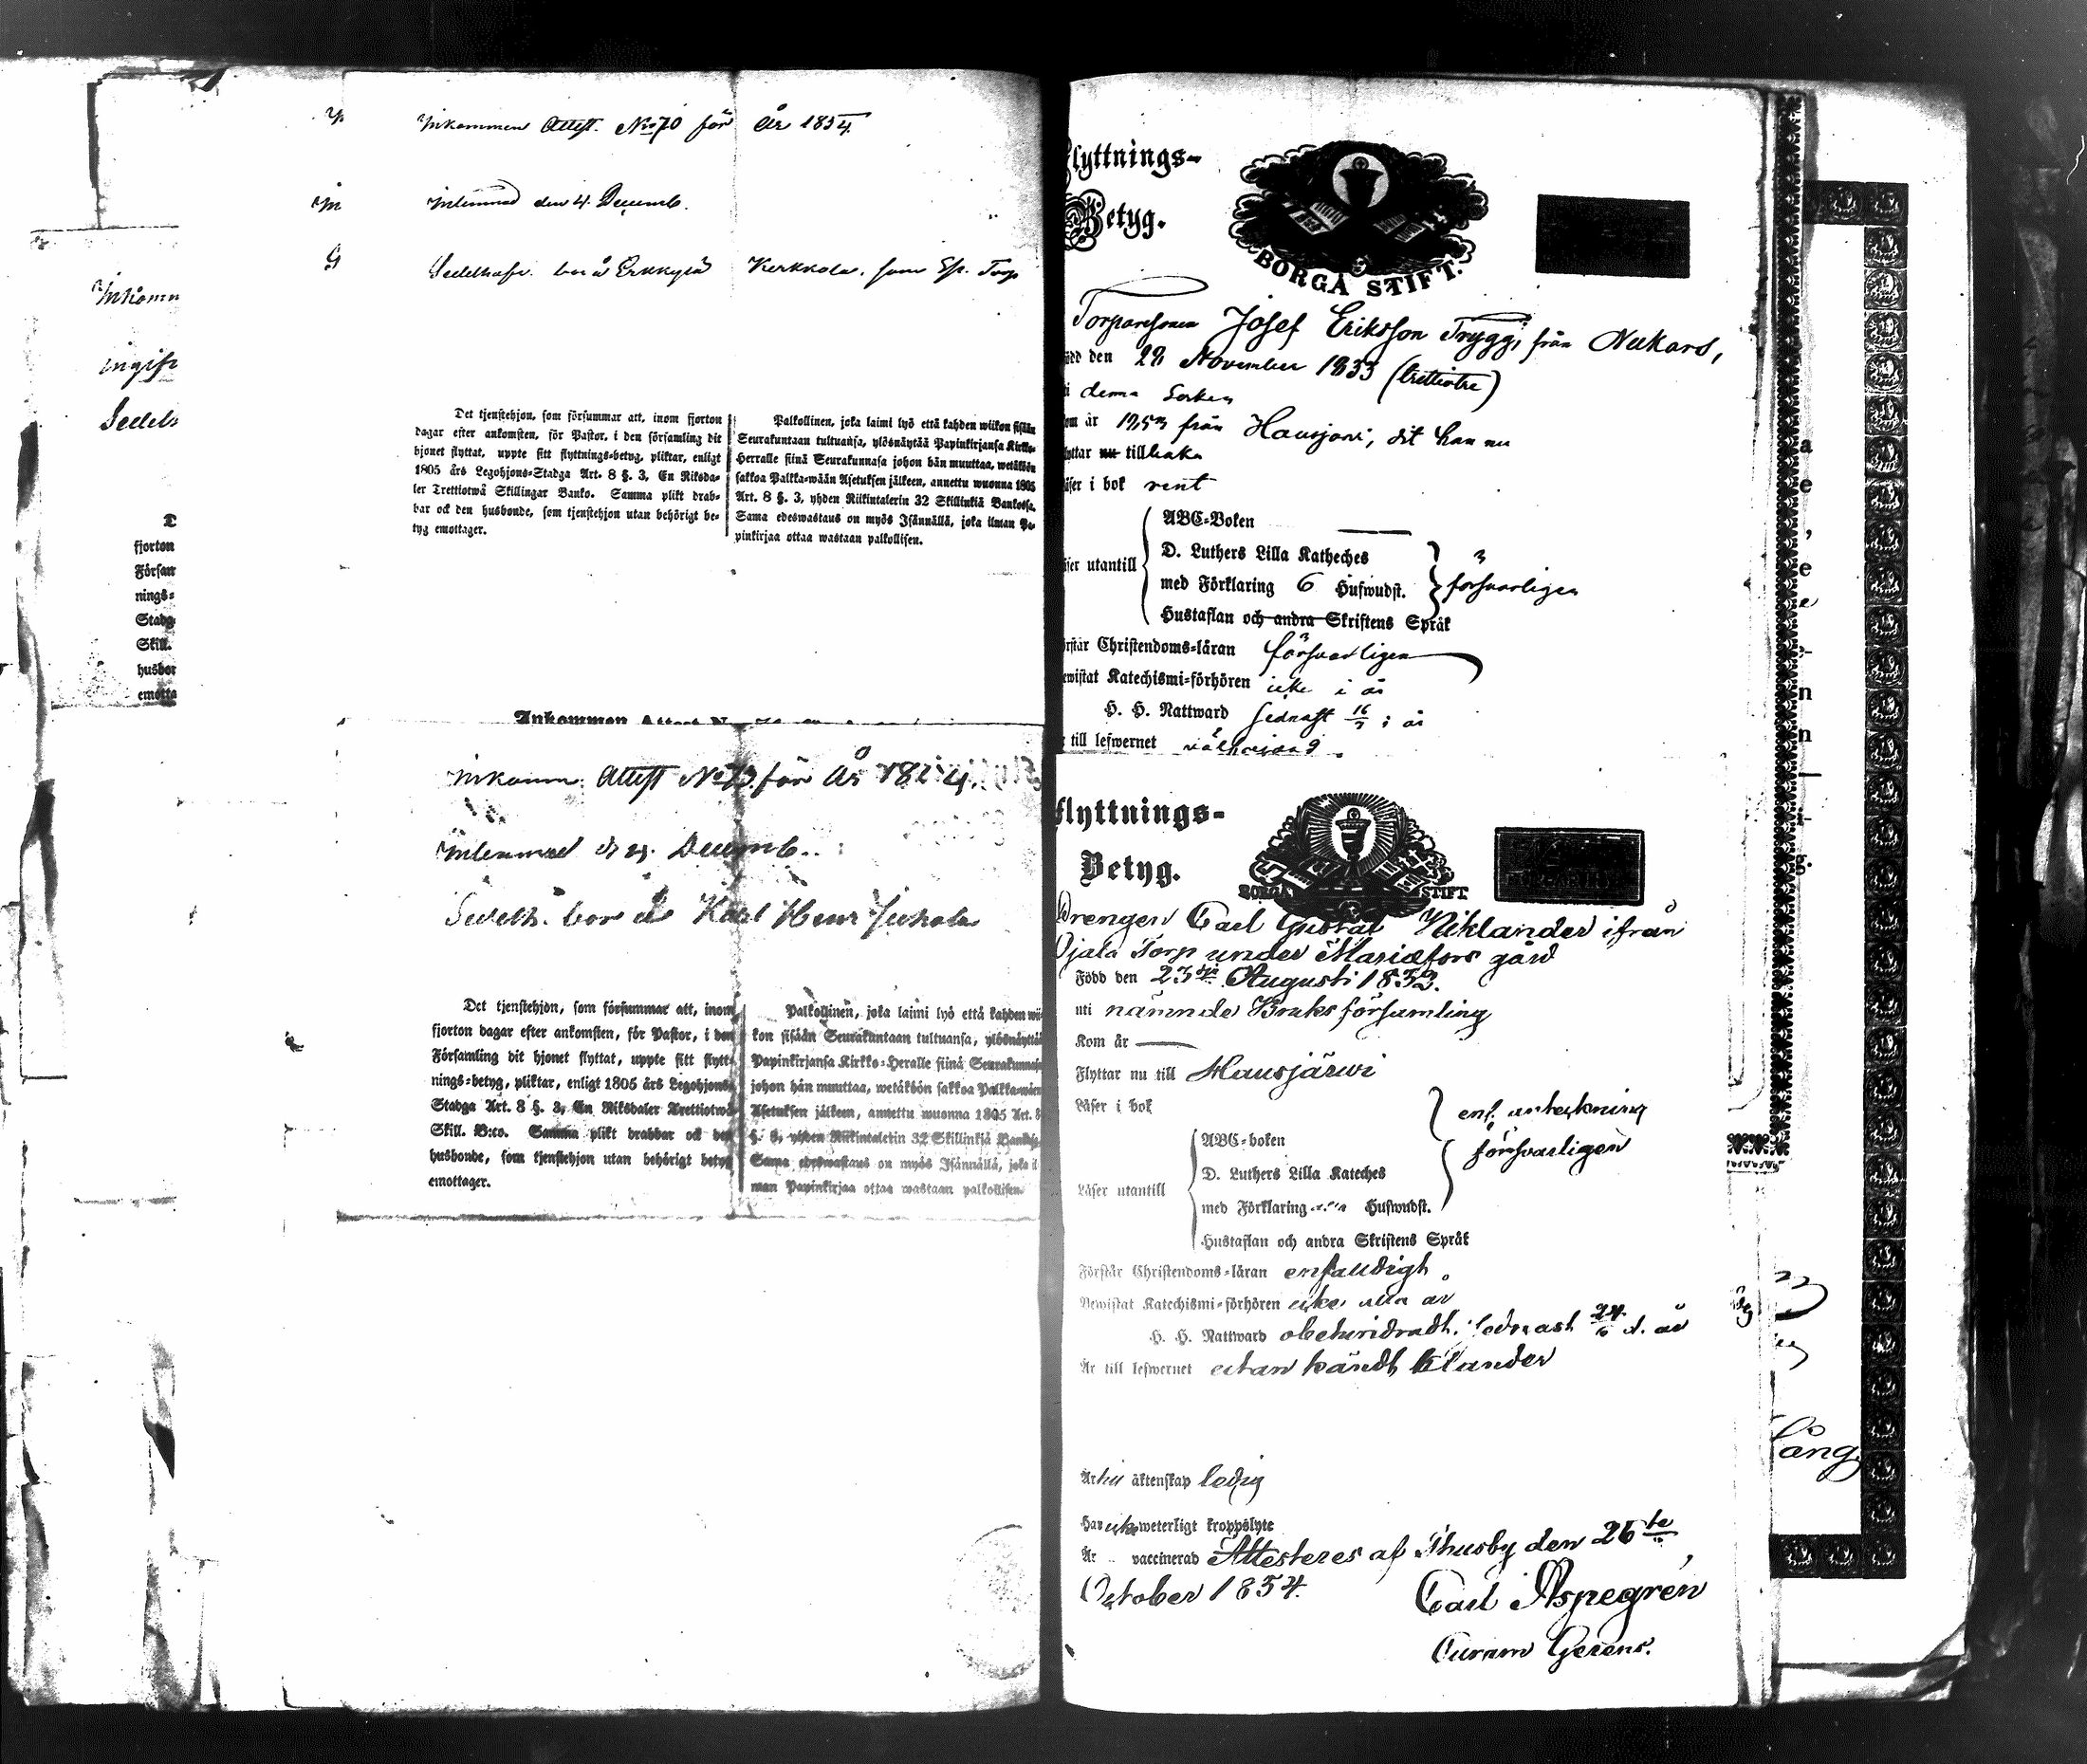 Inkommen Attest. No 70 för År 1854.
Inlemnad den 4. Decemb.
Sedelhafv. bor å Erkkylä Kerkkola, som Sp. Torp
Inkomm
ingift
Sedelh
Det tjenstehjon, som försummar att, inom fjorton
dagar efter ankomsten, för Pastor, i den församling dit
hjonet flyttat, uppte sitt flyttnings-betyg, pliktar, enligt
1805 års Legohjons-Stadga Art. 8 §. 3, En Riksda-
ler Trettiotwå Skillingar Banko. Samma plikt drab-
bar ock den husbonde, som tjenstehjon utan behörigt be-
tyg emottager.
Palkollinen, joka laimi lyö että kahden wiikon sisään
Seurakuntaan tultuansa, ylösnäytää Papinkirjansa Kirkko-
Herralle siinä Seurakunnasa johon hän muuttaa, wetäköön
sakkoa Palkka-wään Asetuksen jälkeen, annettu wuonna 1805
Art. 8 §. 3, yhden Riikintalerin 32 Skillinkiä Bankossa.
Sama edeswastaus on myös Isännällä, joka ilman Pa-
pinkirjaa ottaa wastaan palkollisen.
fjorton
Försam
nings-
Stadg
Skill.
husbon
emotta
Ankommen Attest N
Inkomm. Attest No 73 för År 1854.
Inlemnad d. 4. Decemb.
Sedelh. bor å Karl Henr Juhola
Det tjenstehjon, som försummar att, inom
fjorton dagar efter ankomsten, för Pastor, i den
Församling dit hjonet flyttat, uppte sitt flytt-
nings-betyg, pliktar, enligt 1805 års Legohjons-
Stadga Art. 8 §. 3, En Riksdaler Trettiotwå
Skill. B:co. Samma plikt drabbar ock den
husbonde, som tjenstehjon utan behörigt betyg
emottager.
Palkollinen, joka laimi lyö että kahden wii-
kon sisään Seurakuntaan tultuansa, ylösnäyttää
Papinkirjansa Kirkko-Heralle siinä Seurakunnasa
johon hän muuttaa, wetäköön sakkoa Palkka-wäen
Asetuksen jälkeen, annettu wuonna 1805 Art. 8
§. 3, yhden Riikintalerin 32 Skillinkiä Bankos.
Sama edeswastaus on myös Isännällä, joka il
man Papinkirjaa ottaa wastaan palkollisen.
Flyttnings-
Betyg.
BORGÅ STIFT.
Torparesonen Josef Eriksson Trygg, från Nukars,
född den 28 November 1833 (trettiotre)
i denna Socken
om år 1853 från Hausjärvi, dit han nu
flyttar nu tillbaka
läser i bok rent
läser utantill
ABC-Boken
D. Luthers Lilla Katheches
med Förklaring 6 Hufwudst.
Hustaflan och andra Skriftens Språk
försvarligen
förstår Christendoms-läran försvarligen
bewistat Katechismi-förhören icke i år
H. H. Nattward sednast 16/7 i år
till lefwernet välfrejdad.
Flyttnings-
Betyg.
BORGÅ STIFT
Drengen Carl Gustaf Wiklander ifrån
Ojala Torp under Mariæfors gård
Född den 23dje Augusti 1832.
uti nämnde Bruks församling
Kom år
Flyttar nu till Hausjärwi
Läser i bok
enl. anteckning
försvarligen
Läser utantill
ABC-boken
D. Luthers Lilla Kateches
med Förklaring Hufwudst.
Hustaflan och andra Skriftens Språk
Förstår Christendoms-läran enfaldigt
Bewistat Katechismi-förhören icke alla år
H. H. Nattward obehindradt, sednast 24/6 d. år
Är till lefwernet utan kändt klander
Är till äktenskap ledig
Har icke weterligt kroppslyte
Är vaccinerad Attesteres af Thusby den 26te
October 1854.
Carl Aspegrén
Curam Gerens.
lång